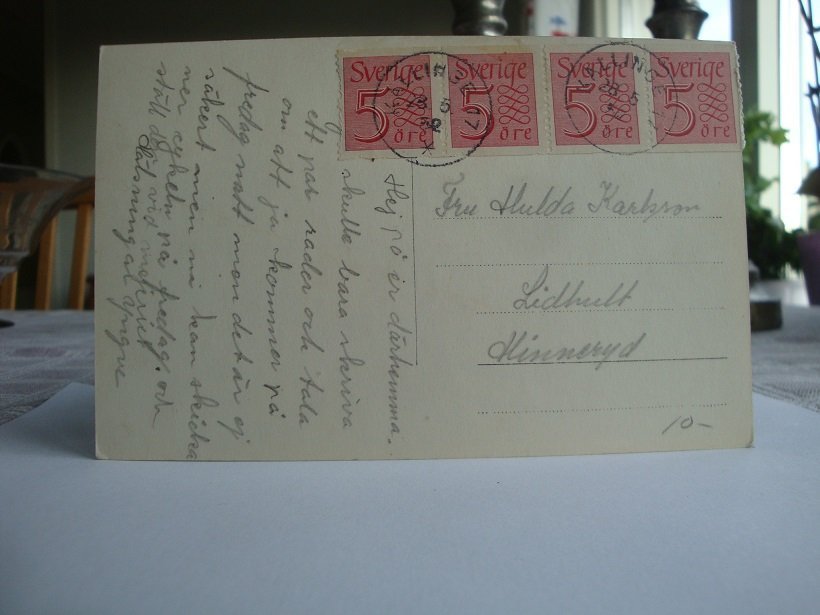 Sverige
5 öre
Sverige
5 öre
Sverige
5 öre
Sverige
5 öre
Hej på er därhemma.
skulle bara skriva
ett par rader och tala
om att ja kommer på
fredag natt men det är ej
säkert men ni kan skicka
ner cykeln på fredag och
ställ den vid
Hälsningar Yngve
Fru Hulda Karlsson
Lidhult
Hinneryd
10-